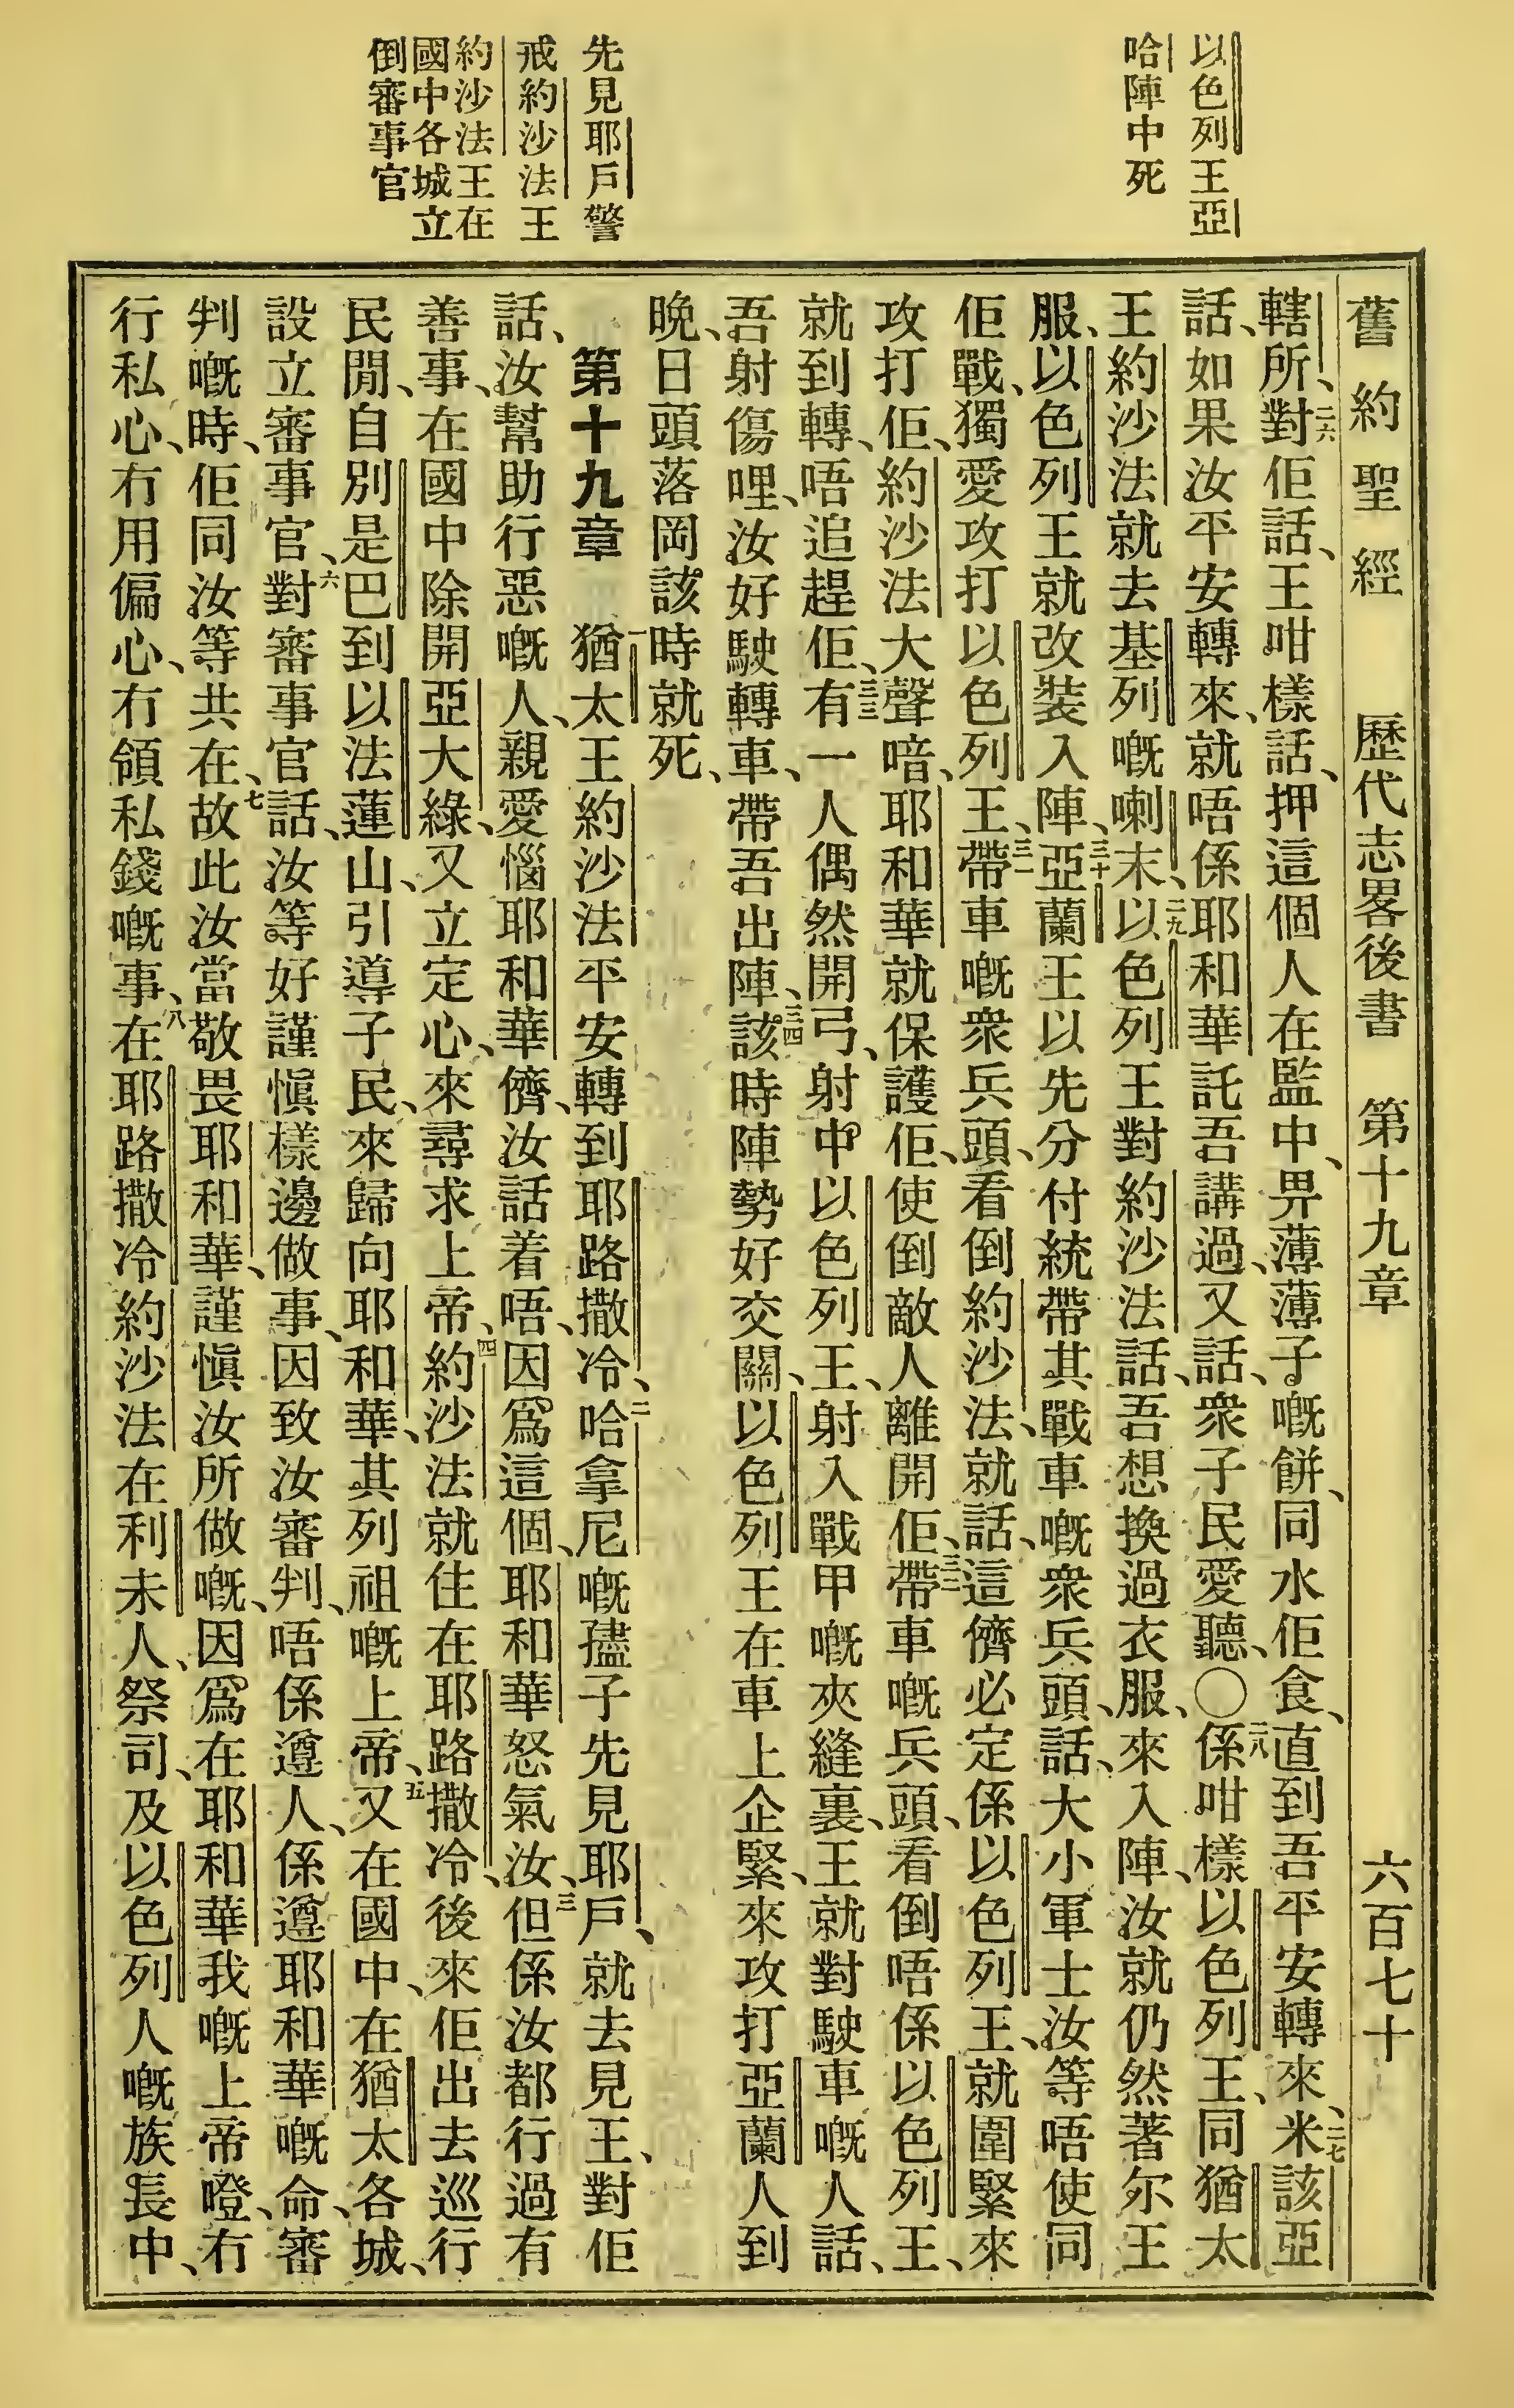 以色列王亞
哈陣中死
先見耶戶警
戒約沙法王
約沙法王在
國中各城立
倒審事官
舊約聖經 歷代志畧後書 第十九章 六百七十
轄所、二六對佢話、王咁樣話、押這個人在監中、畀薄薄子嘅餅、同水佢食、直到吾平安轉來、二七米該亞
話、如果汝平安轉來、就唔係耶和華託吾講過、又話、衆子民愛聽、〇二八係咁樣以色列王、同猶太
王約沙法就去基列嘅喇末、二九以色列王對約沙法話、吾想換過衣服、來入陣、汝就仍然著尔王
服、以色列王就改裝入陣、三十亞蘭王以先分付統帶其戰車嘅衆兵頭、話、大小軍士汝等唔使同
佢戰、獨愛攻打以色列王、三一帶車嘅衆兵頭、看倒約沙法、就話、這儕必定係以色列王、就圍緊來
攻打佢、約沙法大聲喑、耶和華就保護佢、使倒敵人離開佢、三二帶車嘅兵頭、看倒唔係以色列王、
就到轉、唔追趕佢、三三有一人偶然開弓、射中以色列王、射入戰甲嘅夾縫裏、王就對駛車嘅人話、
吾射傷哩、汝好駛轉車、帶吾出陣、三四該時陣勢好交關、以色列王在車上企緊、來攻打亞蘭人到
晚、日頭落岡該時就死、
第十九章 一猶太王約沙法平安轉到耶路撒冷、二哈拿尼嘅孻子先見耶戶、就去見王、對佢
話、汝幫助行惡嘅人、親愛惱耶和華儕、汝話着唔、因爲這個、耶和華怒氣汝、三但係汝都行過有
善事、在國中除開亞大綠、又立定心、來尋求上帝、四約沙法就住在耶路撒冷、後來佢出去巡行
民閒、自別是巴到以法蓮山、引導子民、來歸向耶和華、其列祖嘅上帝、五又在國中、在猶太各城、
設立審事官、六對審事官話、汝等好謹愼樣邊做事、因致汝審判、唔係遵人、係遵耶和華嘅命、審
判嘅時、佢同汝等共在、七故此汝當敬畏耶和華、謹愼汝所做嘅、因爲在耶和華我嘅上帝噔、冇
行私心、冇用偏心、冇領私錢嘅事、八在耶路撒冷約沙法在利未人、祭司、及以色列人嘅族長中、